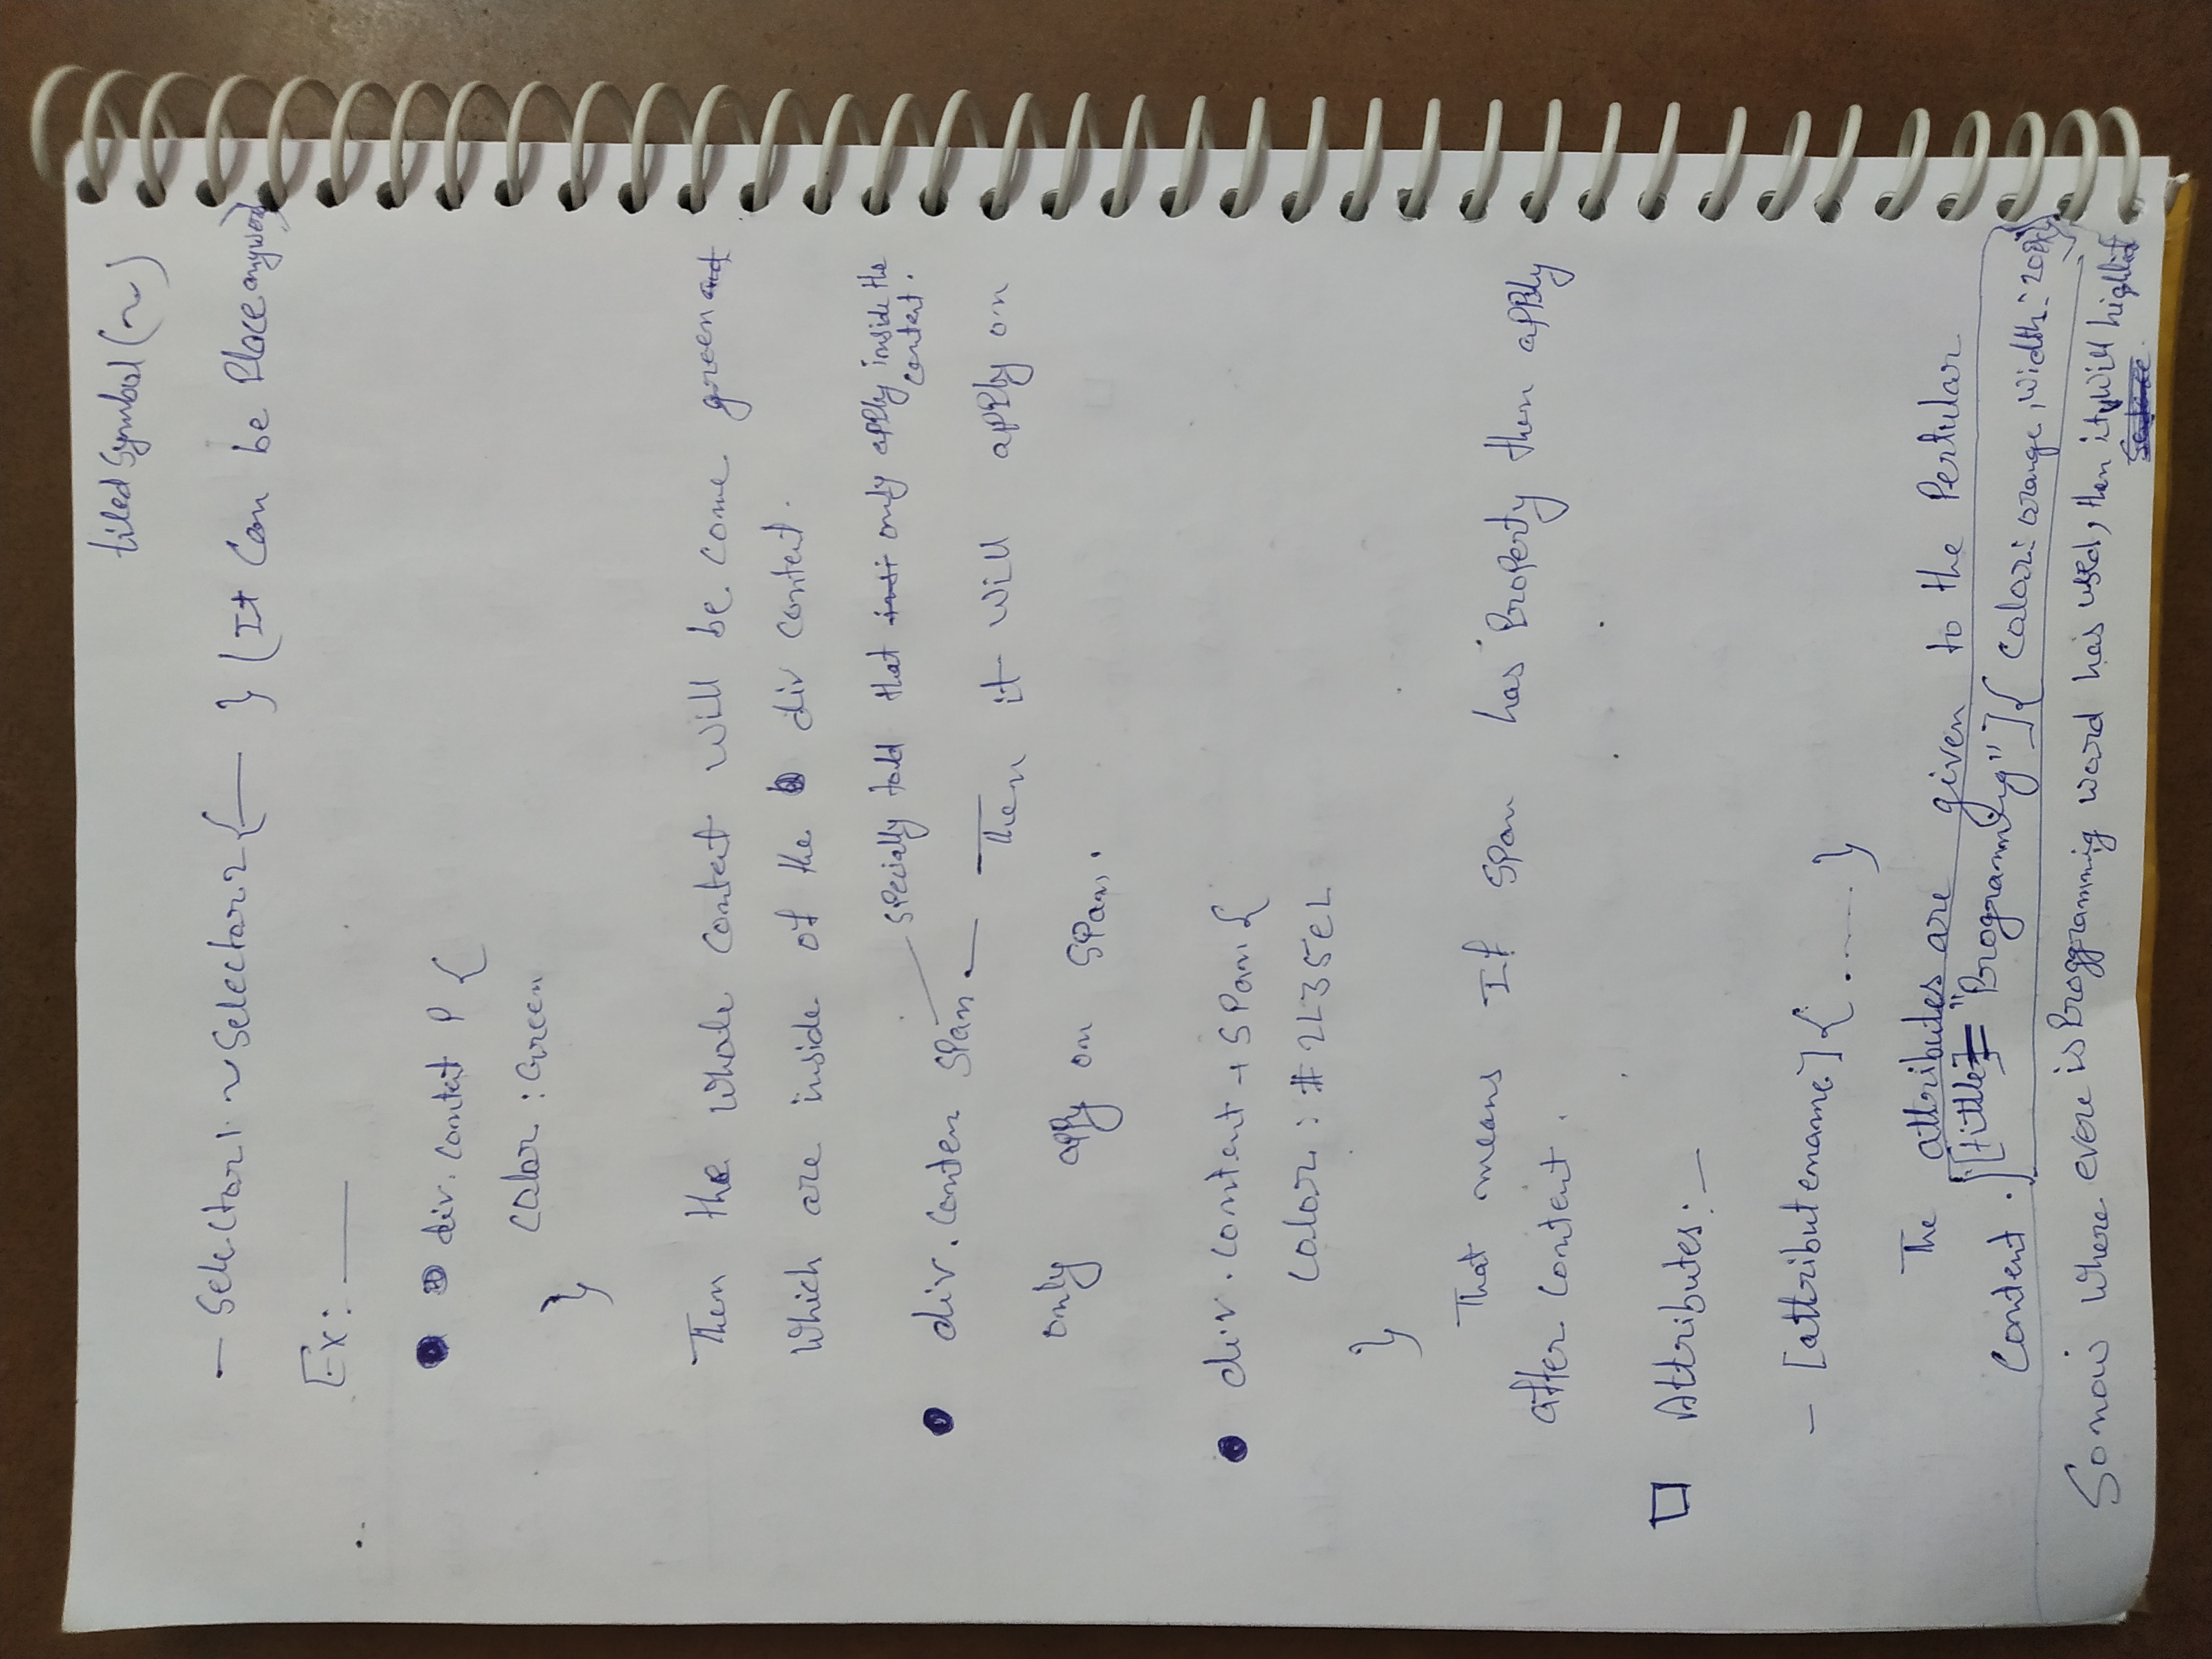 tiled Symbol (~)
- Selector1 ~ Selector2 { — } (It Can be Place anywere)
Ex: —
• div. contet P {
Color : Green
}
Then the whole content will be come green and
which are inside of the div content.
specially told that only apply inside the
content.
• div. Conten SPan. — Then it will apply on
only apply on SPan.
• div. Content + SPan {
Color : #2L35eL
}
That means If SPan has Property then apply
after Content.
□ Attributes: —
- [attributename] { ..... }
The attributes are given to the Pertular
Content. [tittle = "Programmig"] { Color: orange, width: 20px }
So now where evere is Proggramming word has used, then it will highlist